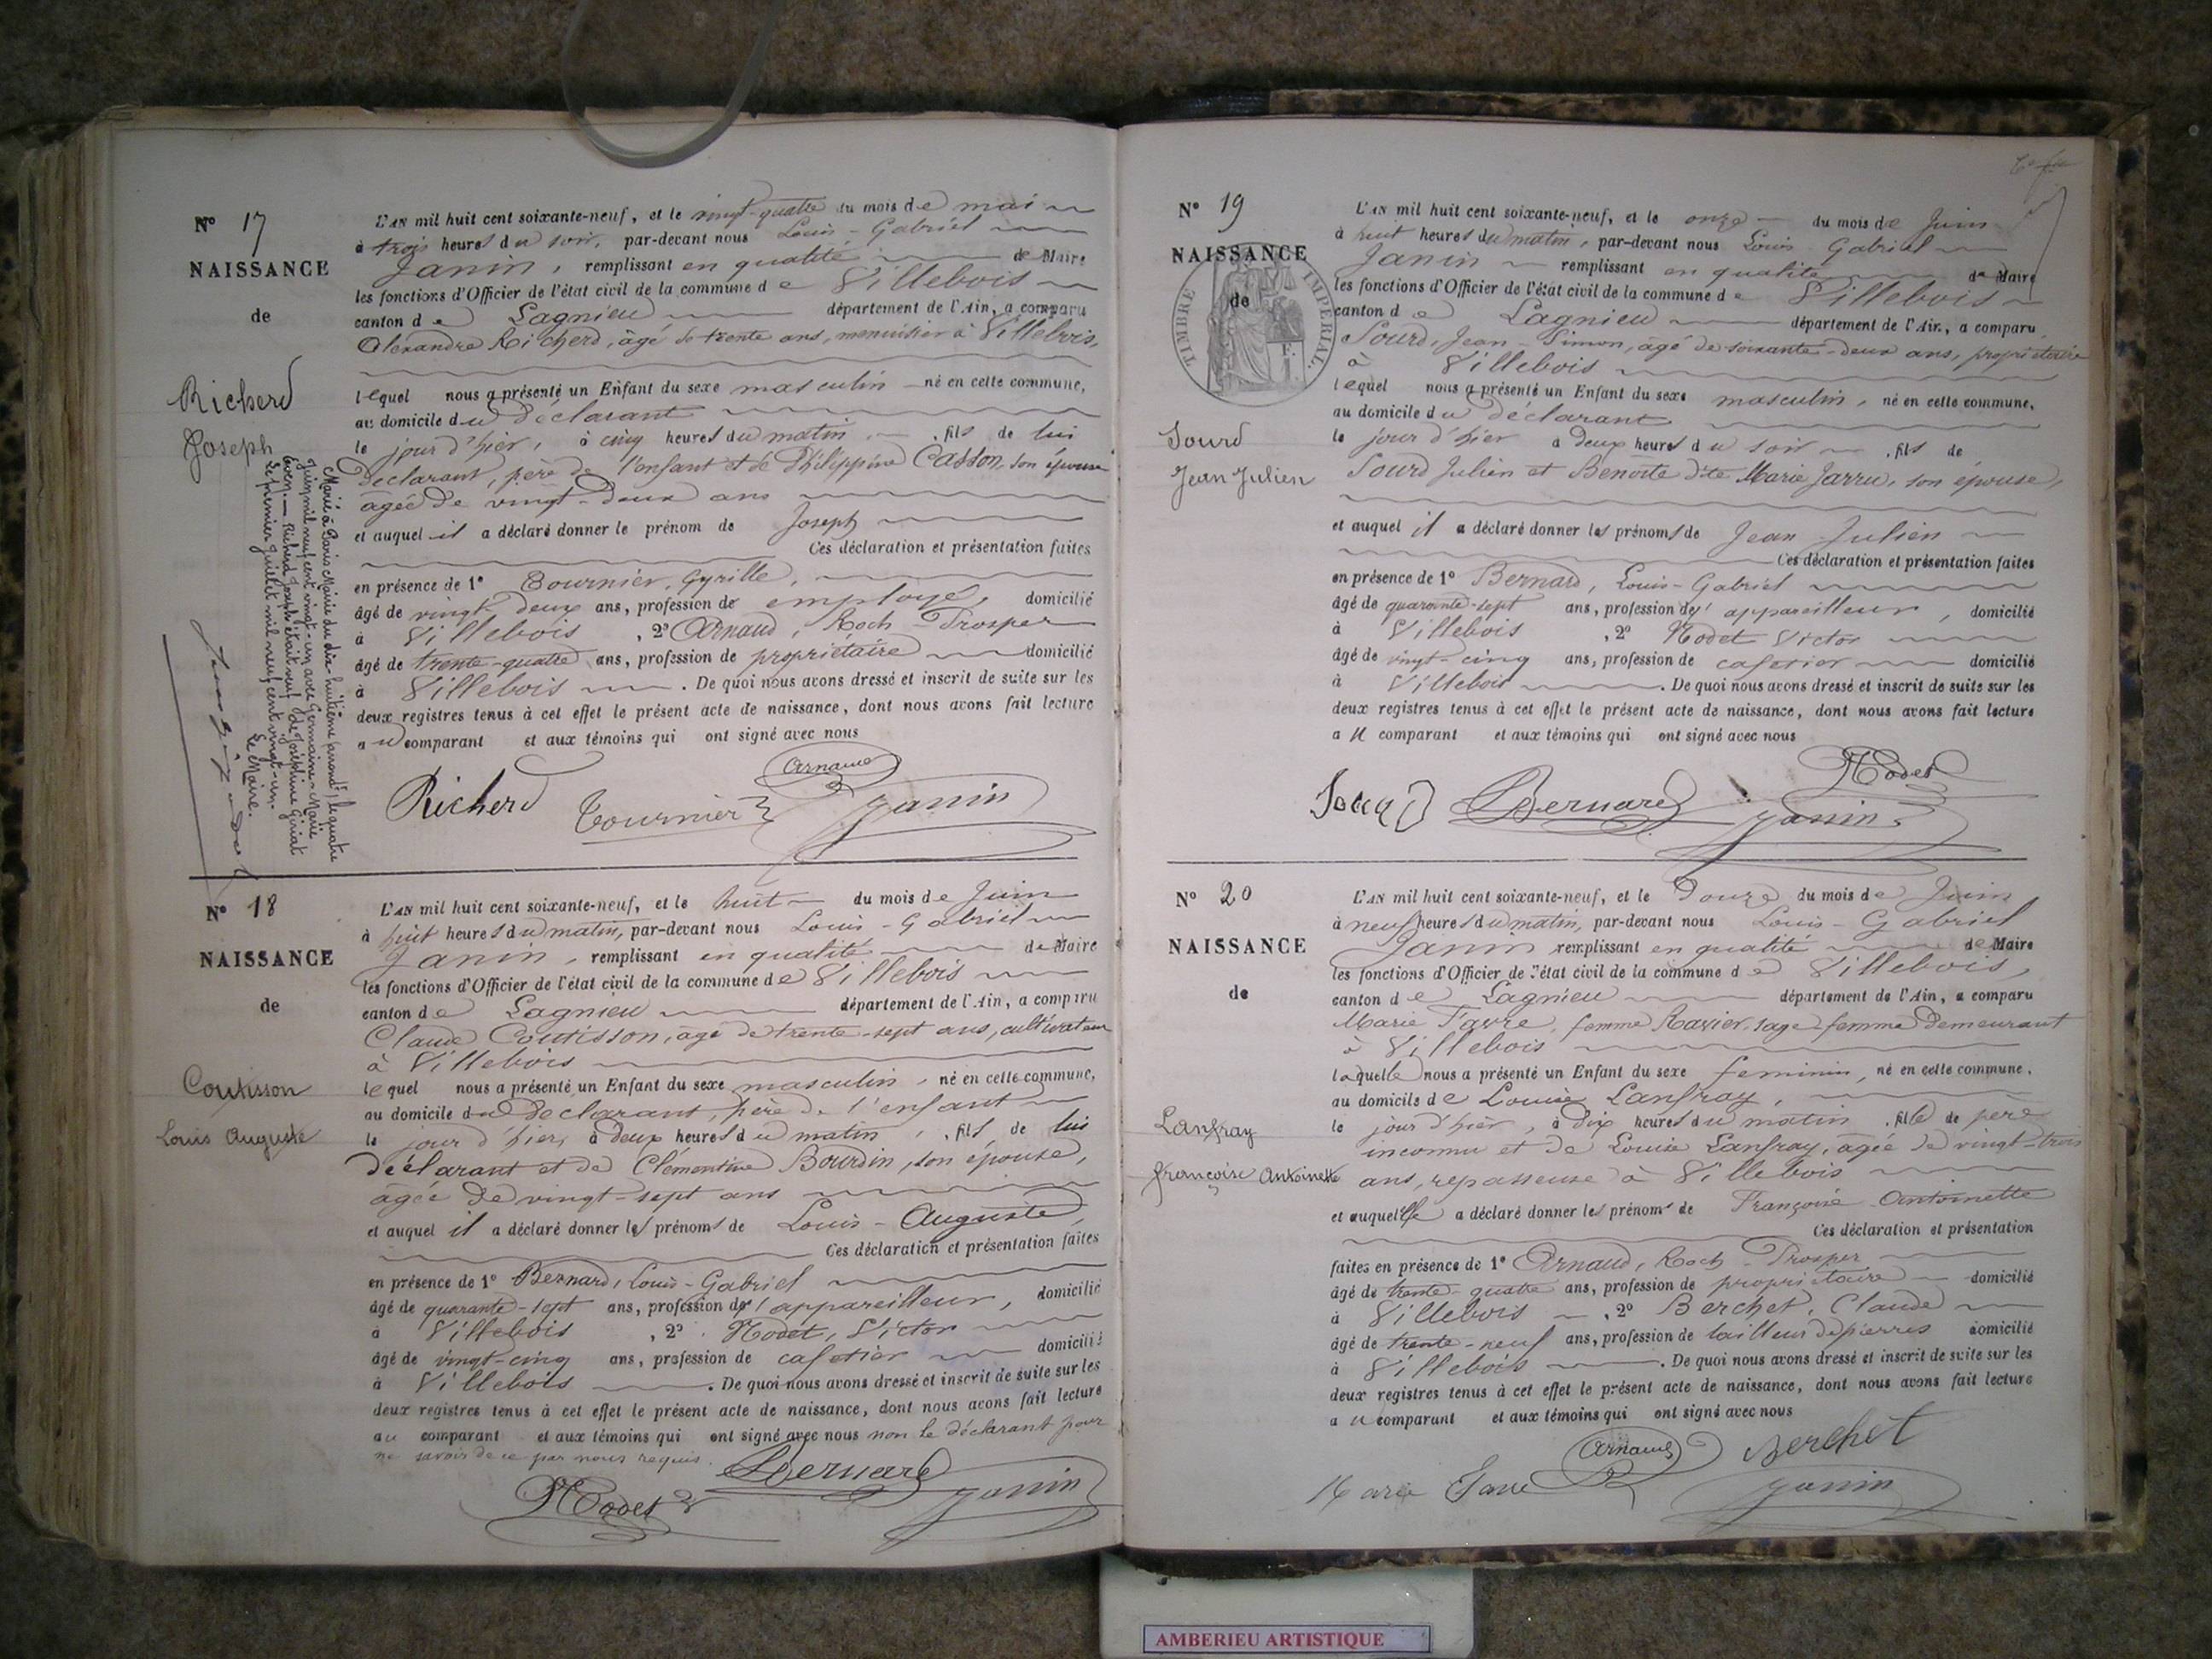 N° 17
NAISSANCE
de
Richerd
Joseph
L'AN mil huit cent soixante-neuf, et le vingt-quatre du mois de mai
à trois heures du soir, par-devant nous Louis-Gabriel
Janin, remplissant en qualité de Maire
les fonctions d'Officier de l'état civil de la commune de Villebois
canton de Lagnieu département de l'Ain, a comparu
Alexandre Richerd, âgé de trente ans, menuisier à Villebois,
lequel nous a présenté un Enfant du sexe masculin né en cette commune,
au domicile du déclarant
le jour d'hier, à cinq heures du matin, fils de lui
déclarant, père de l'enfant et de Philippine Casson, son épouse
âgée de vingt-deux ans
et auquel il a déclaré donner le prénom de Joseph
Ces déclaration et présentation faites
en présence de 1° Tournier, Cyrille,
âgé de vingt deux ans, profession de employé, domicilié
à Villebois, 2° Arnaud, Roch-Prosper
âgé de trente-quatre ans, profession de propriétaire domicilié
à Villebois. De quoi nous avons dressé et inscrit de suite sur les
deux registres tenus à cet effet le présent acte de naissance, dont nous avons fait lecture
au comparant et aux témoins qui ont signé avec nous
Marié à Paris Mairie du dix-huitième arrondt, le quatre
Juin mil neuf cent vingt-un avec Germaine Marie
Richerd Joseph était veuf de Joséphine Giriat
Le premier Juillet mil neuf cent vingt-un.
Le Maire.
Arnaud
Richerd Tournier Janin
N° 18
NAISSANCE
de
Coutisson
Louis Auguste
L'AN mil huit cent soixante-neuf, et le huit du mois de Juin
à huit heures du matin, par-devant nous Louis-Gabriel
Janin, remplissant en qualité de Maire
les fonctions d'Officier de l'état civil de la commune de Villebois
canton de Lagnieu département de l'Ain, a comparu
Claude Coutisson, âgé de trente-sept ans, cultivateur
à Villebois
lequel nous a présenté un Enfant du sexe masculin, né en cette commune,
au domicile du déclarant, père de l'enfant
le jour d'hier, à deux heures du matin, fils de lui
déclarant et de Clémentine Bourdin, son épouse,
âgée de vingt-sept ans
et auquel il a déclaré donner les prénoms de Louis-Auguste,
Ces déclaration et présentation faites
en présence de 1° Bernard, Louis-Gabriel
âgé de quarante-sept ans, profession d'appareilleur, domicilié
à Villebois, 2° Hodet, Victor
âgé de vingt-cinq ans, profession de cafetier domicilié
à Villebois. De quoi nous avons dressé et inscrit de suite sur les
deux registres tenus à cet effet le présent acte de naissance, dont nous avons fait lecture
au comparant et aux témoins qui ont signé avec nous non le déclarant pour
ne savoir de ce par nous requis.
Bernard
Hodet Janin
N° 19
NAISSANCE
de
TIMBRE IMPÉRIAL
Sourd
Jean Julien
L'AN mil huit cent soixante-neuf, et le onze du mois de Juin
à huit heures du matin, par-devant nous Louis Gabriel
Janin remplissant en qualité de Maire
les fonctions d'Officier de l'état civil de la commune de Villebois
canton de Lagnieu département de l'Ain, a comparu
Sourd, Jean-Simon, âgé de soixante-deux ans, propriétaire
à Villebois
lequel nous a présenté un Enfant du sexe masculin, né en cette commune,
au domicile du déclarant
le jour d'hier à deux heures du soir, fils de
Sourd Julien et Benoîte dite Marie Jarru, son épouse,
et auquel il a déclaré donner les prénoms de Jean Julien
Ces déclaration et présentation faites
en présence de 1° Bernard, Louis-Gabriel
âgé de quarante-sept ans, profession d'appareilleur, domicilié
à Villebois, 2° Hodet Victor
âgé de vingt-cinq ans, profession de cafetier domicilié
à Villebois. De quoi nous avons dressé et inscrit de suite sur les
deux registres tenus à cet effet le présent acte de naissance, dont nous avons fait lecture
au comparant et aux témoins qui ont signé avec nous
Hodet
Sourd Bernard Janin
N° 20
NAISSANCE
de
Lanfray
françoise Antoinette
L'AN mil huit cent soixante-neuf, et le Douze du mois de Juin
à neuf heures du matin, par-devant nous Louis-Gabriel
Janin remplissant en qualité de Maire
les fonctions d'Officier de l'état civil de la commune de Villebois,
canton de Lagnieu département de l'Ain, a comparu
Marie Favre, femme Ravier, sage-femme demeurant
à Villebois
laquelle nous a présenté un Enfant du sexe feminin, né en cette commune,
au domicile de Louise Lanfray,
le jour d'hier, à dix heures du matin, fille de père
inconnu et de Louise Lanfray, âgée de vingt-trois
ans, repasseuse à Villebois
et auquel elle a déclaré donner les prénoms de Françoise Antoinette
Ces déclaration et présentation
faites en présence de 1° Arnaud, Roch-Prosper
âgé de trente-quatre ans, profession de propriétaire domicilié
à Villebois, 2° Berchet, Claude
âgé de trente-neuf ans, profession de tailleur de pierres domicilié
à Villebois. De quoi nous avons dressé et inscrit de suite sur les
deux registres tenus à cet effet le présent acte de naissance, dont nous avons fait lecture
au comparant et aux témoins qui ont signé avec nous
Arnaud Berchet
Marie Favre Janin
AMBERIEU ARTISTIQUE